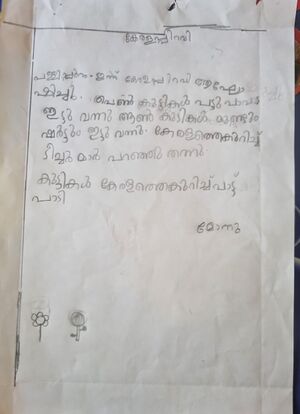 കേരളപ്പിറവി
പള്ളിപ്പുറം - ഇന്ന് കേരളപ്പിറവി ആഘോ
ഷിച്ചു. പെൺ കുട്ടികൾ പട്ടു പാവാട
ഇട്ടു വന്നു ആൺ കുട്ടികൾ മുണ്ടും
ഷർട്ടും ഇട്ടു വന്നു. കേരളത്തെകുറിച്ച്
ടീച്ചർ മാർ പറഞ്ഞു തന്നു.
കുട്ടികൾ കേരളത്തെകുറിച്ച് പാട്ട്
പാടി
മോനു